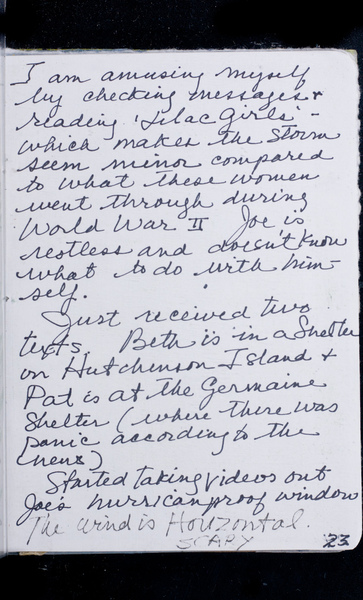 I am amusing myself
by checking messages +
reading 'Lilac Girls' -
which makes the storm
seem minor compared
to what these women
went through during
World War II Joe is
restless and doesn't know
what to do with him-
self.
Just received two
texts. Beth is in a Shelter
on Hutchinson Island +
Pat is at the Germaine
Shelter (where there was
panic according to the
news)
Started taking videos out
Joe's hurricanproof window
The wind is Horizontal.
SCARY
23